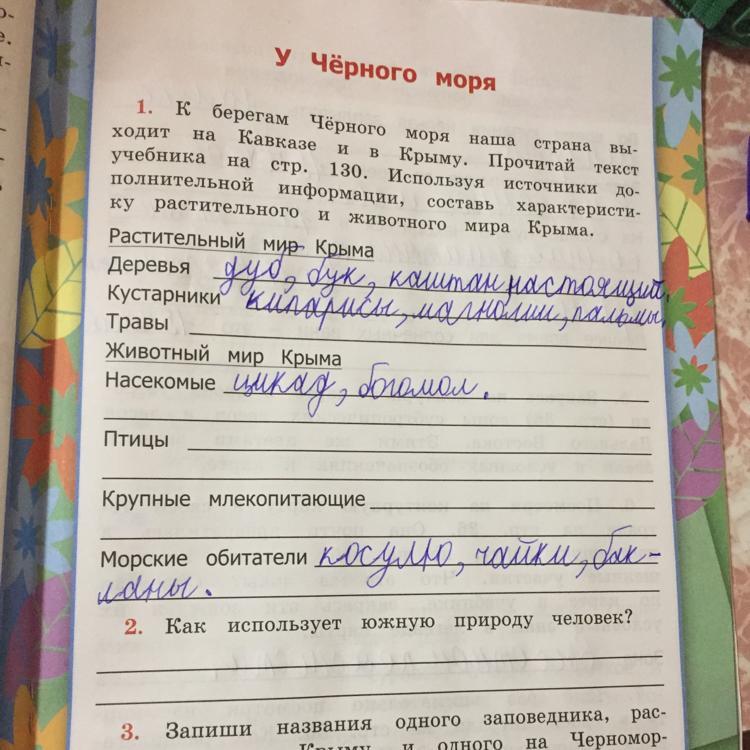 У Чёрного моря
1. К берегам Чёрного моря наша страна вы-
ходит на Кавказе и в Крыму. Прочитай текст
учебника на стр. 130. Используя источники до-
полнительной информации, составь характеристи-
ку растительного и животного мира Крыма.
Растительный мир Крыма
Деревья дуб, бук, каштан настоящий,
Кустарники кипарисы, магнолии, пальмы.
Травы
Животный мир Крыма
Насекомые цикад, богомол.
Птицы
Крупные млекопитающие
Морские обитатели косулю, чайки, бак-
ланы.
2. Как использует южную природу человек?
3. Запиши названия одного заповедника, рас-
Крыму и одного на Черномор-